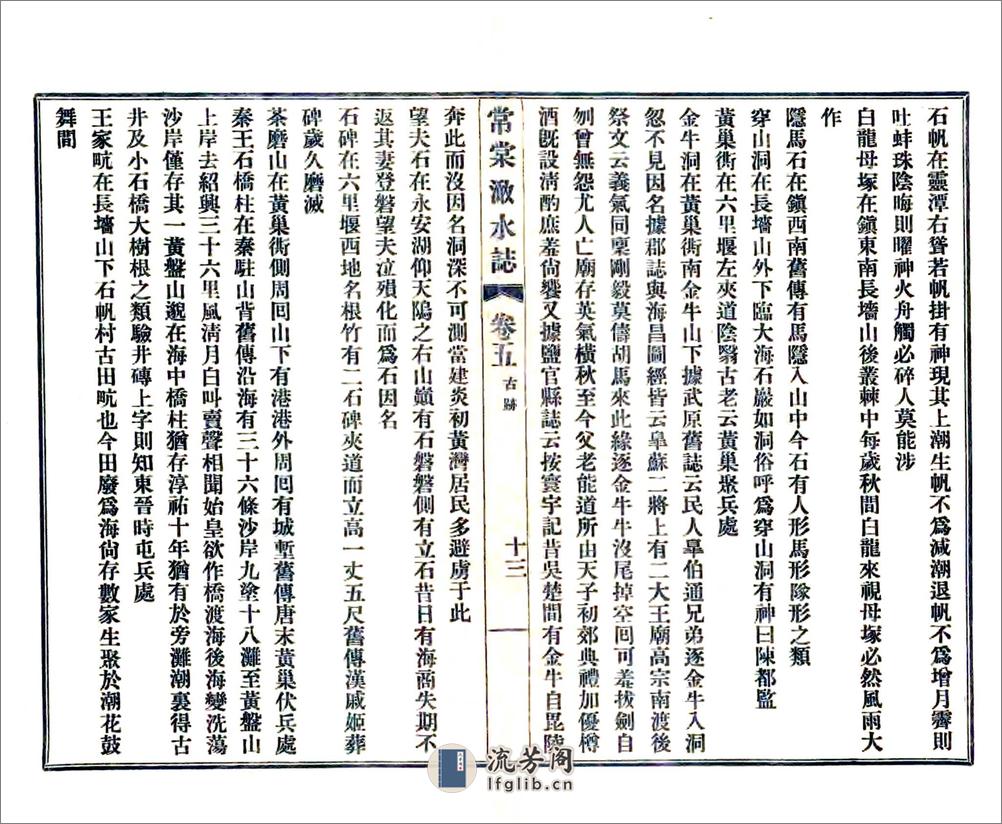 石帆在靈潭右聳若帆掛有神現其上潮生帆不為減潮退帆不為增月霽則
吐蚌珠陰晦則曜神火舟觸必碎人莫能涉
白龍母塚在鎮東南長墻山後叢棘中每歲秋間白龍來視母塚必然風雨大
作
隱馬石在鎮西南舊傳有馬隱入山中今石有人形馬形隊形之類
穿山洞在長墻山外下臨大海石巖如洞俗呼為穿山洞有神曰陳都監
黃巢衖在六里堰左夾道陰翳古老云黃巢聚兵處
金牛洞在黃巢衖南金牛山下據武原舊誌云民人臯伯通兄弟逐金牛入洞
忽不見因名據郡誌與海昌圖經皆云臯蘇二將上有二大王廟高宗南渡後
祭文云義氣同稟剛毅莫儔胡馬來此緣逐金牛牛沒尾掉空囘可羞拔劍自
刎曾無怨尤人亡廟存英氣橫秋至今父老能道所由天子初郊典禮加優樽
酒既設清酌庶羞尙饗又據鹽官縣誌云按寰宇記昔吳楚間有金牛自毘陵
常棠澉水誌 卷五 古蹟 十三
奔此而沒因名洞深不可測當建炎初黃灣居民多避虜于此
望夫石在永安湖仰天隝之右山巔有石磐磐側有立石昔日有海商失期不
返其妻登磐望夫泣殞化而為石因名
石碑在六里堰西地名根竹有二石碑夾道而立高一丈五尺舊傳漢戚姬葬
碑歲久磨滅
茶磨山在黃巢衖側周囘山下有港港外周囘有城塹舊傳唐末黃巢伏兵處
秦王石橋柱在秦駐山背舊傳沿海有三十六條沙岸九塗十八灘至黃盤山
上岸去紹興三十六里風淸月白叫賣聲相聞始皇欲作橋渡海後海變洗蕩
沙岸僅存其一黃盤山邈在海中橋柱猶存淳祐十年猶有於旁灘潮裏得古
井及小石橋大樹根之類驗井磚上字則知東晉時屯兵處
王家㽘在長墻山下石帆村古田㽘也今田廢為海尙存數家生聚於潮花鼓
舞間
流芳阁
lfglib.cn